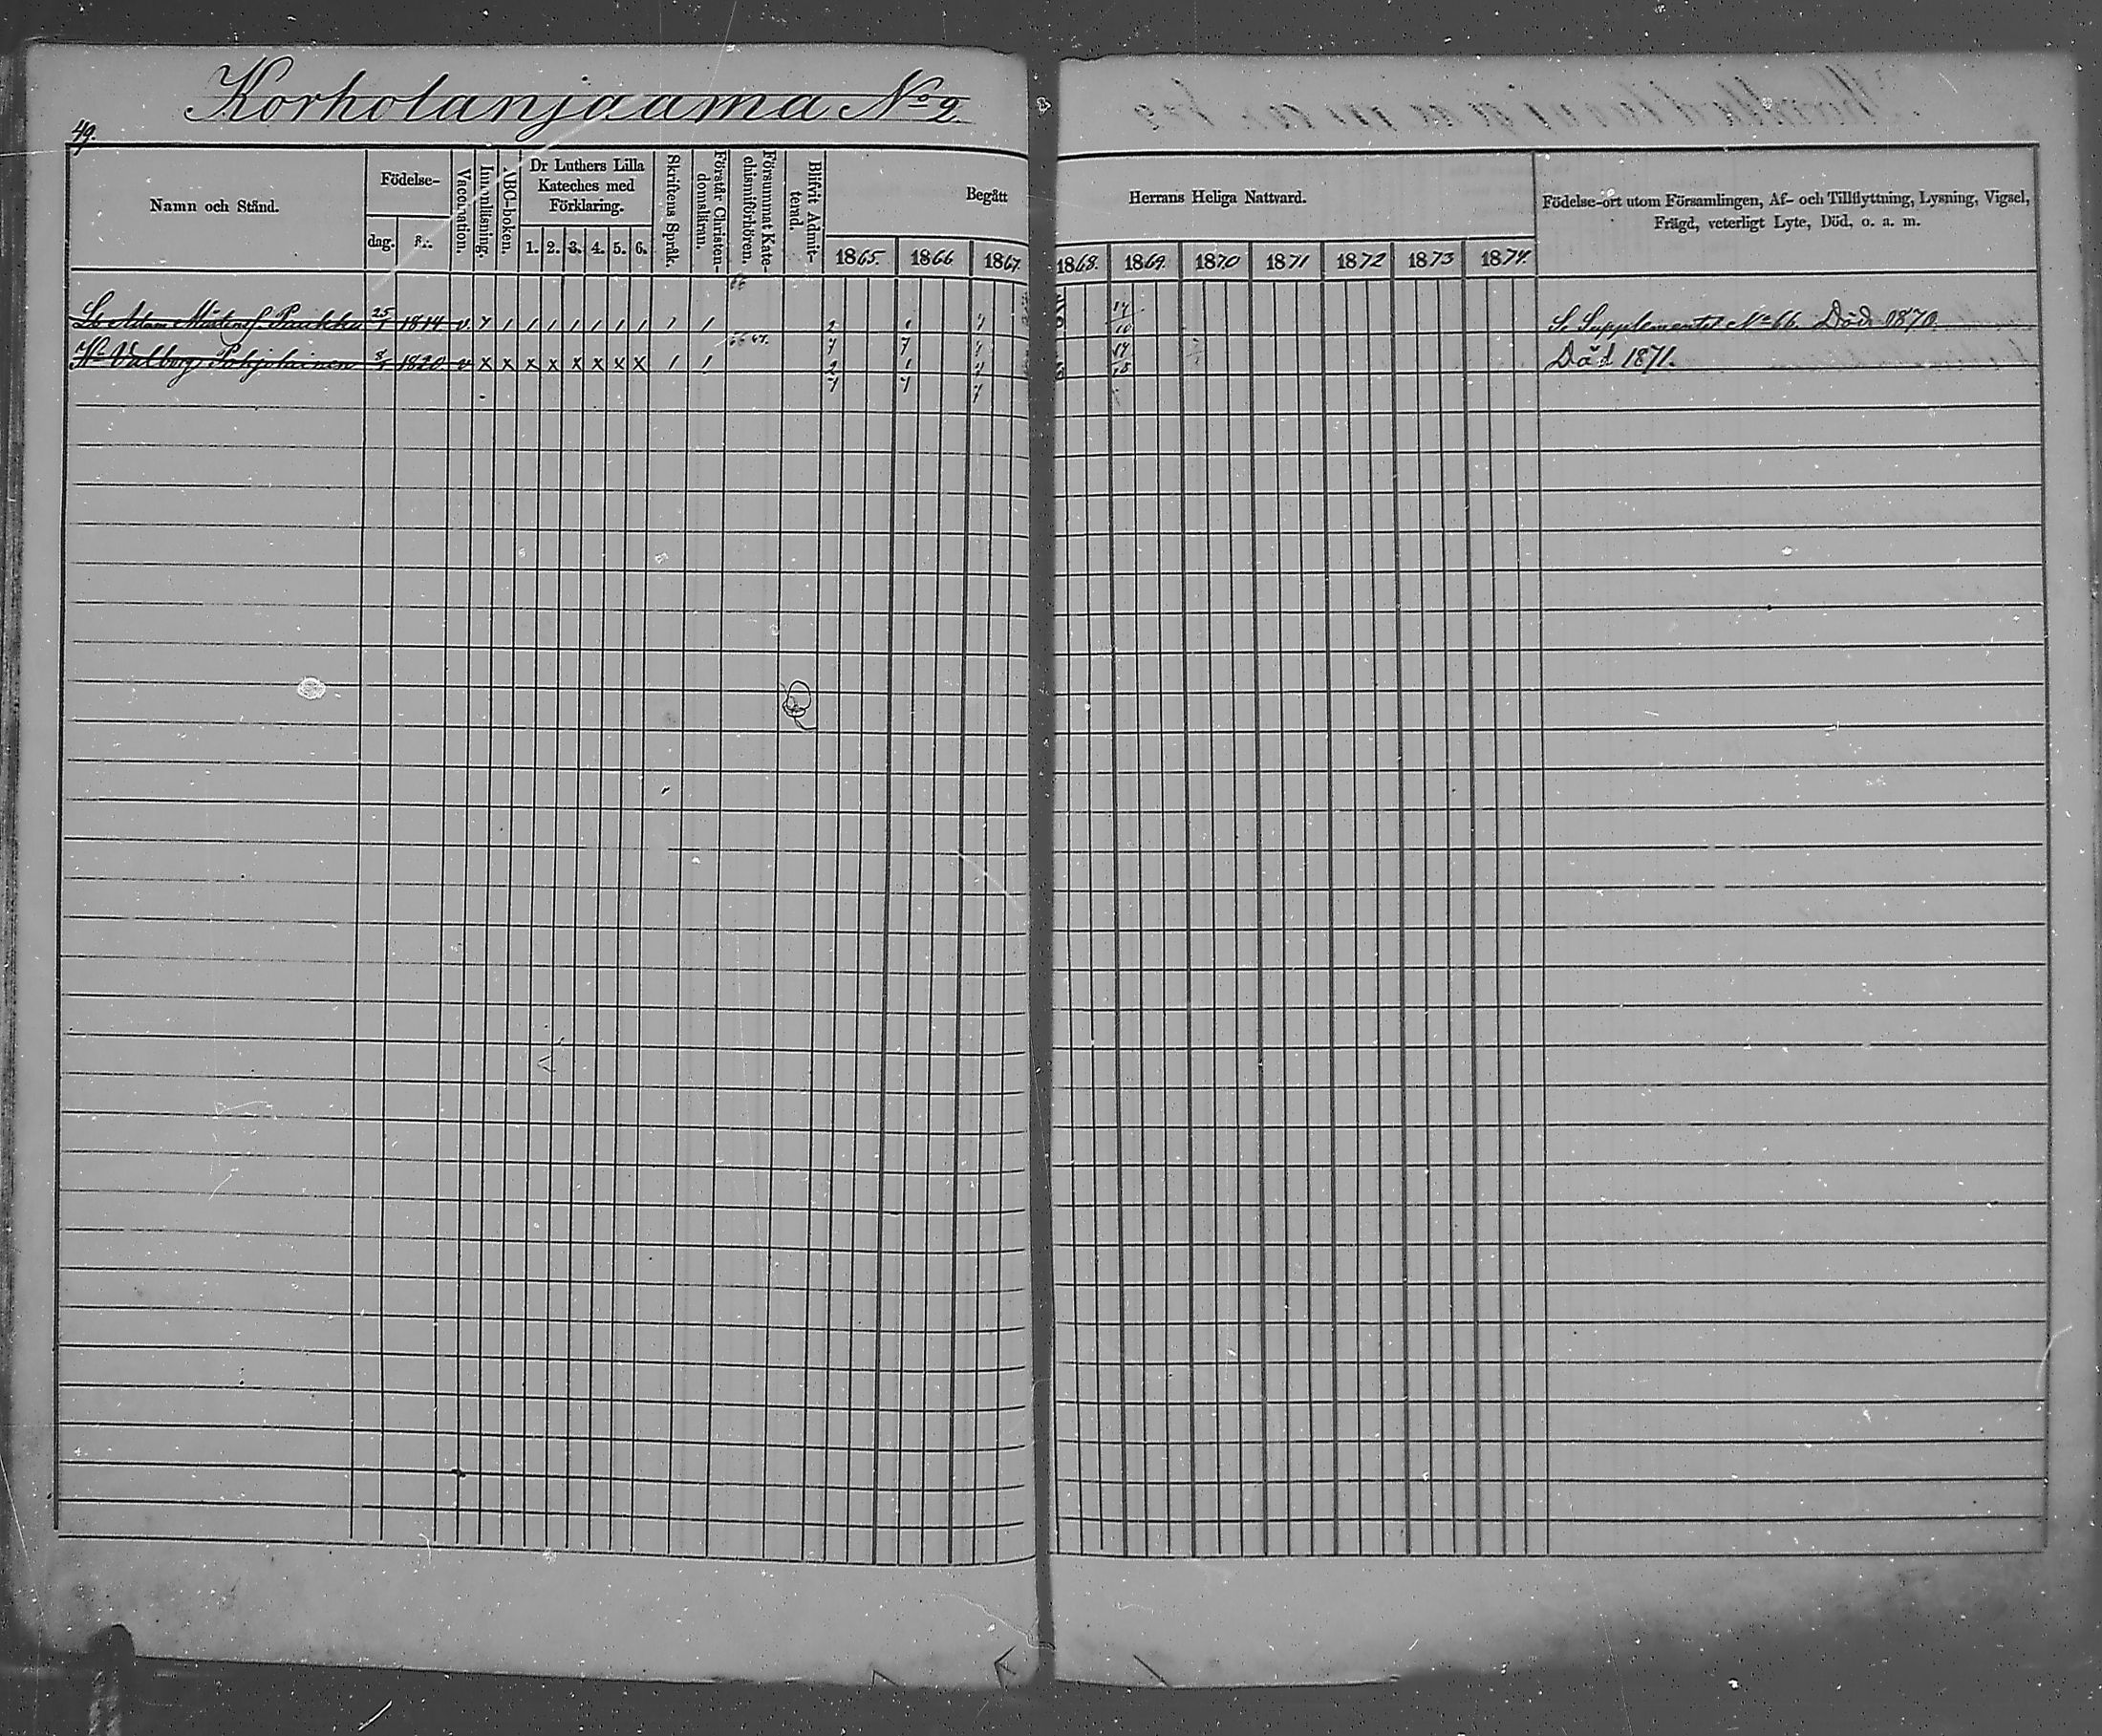 Korholanjaama No 2.
49.
Namn och Stånd.
Födelse-
dag.
år.
Vaccination.
Innanläsning.
ABC-boken.
Dr Luthers Lilla
Kateches med
Förklaring.
1. 2. 3. 4. 5. 6.
Skriftens Språk.
Förstår Christen-
domsläran.
Försummat Kate-
chismiförhören.
Blifvit Admit-
terad.
Begått Herrans Heliga Nattvard.
1865. 1866 1867. 1868. 1869. 1870 1871 1872 1873 1874.
Födelse-ort utom Församlingen, Af- och Tillflyttning, Lysning, Vigsel,
Frägd, veterligt Lyte, Död, o. a. m.
66
Adam Mårtens. Paukku 25/1 1814 v. 7 / / / / / / / / / S. Supplementet No 66. Död 1870.
66 67.
Hu Valborg Pohjolainen 8/1 1820. v x x x x x x x x / / Död 1871.